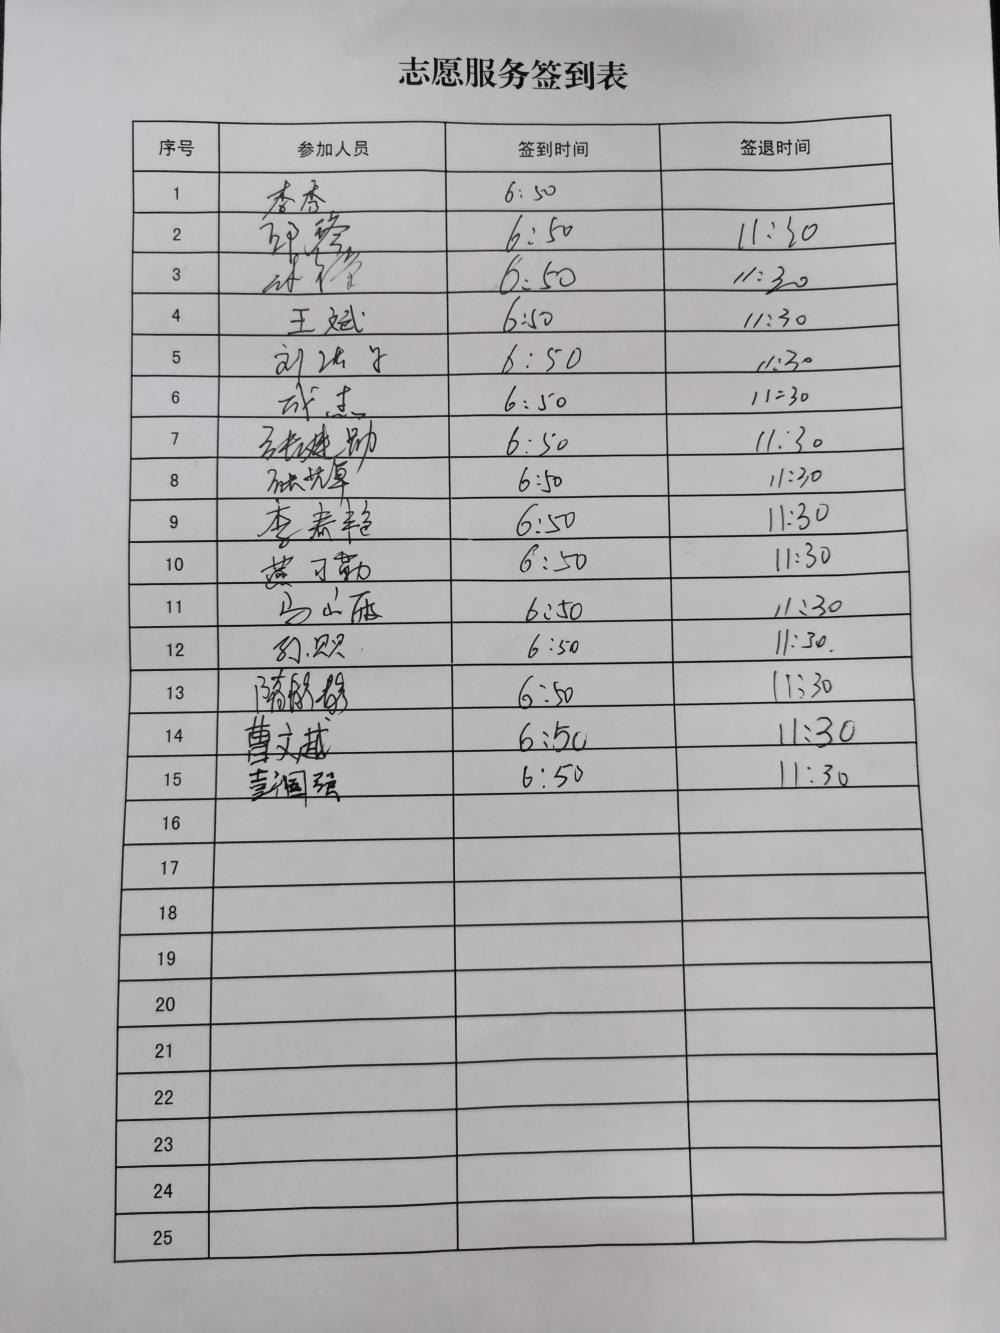 志愿服务签到表
序号 参加人员 签到时间 签退时间
1 李秀 6:50
2 邱 6:50 11:30
3 6:50 11:30
4 王斌 6:50 11:30
5 刘 6:50 11:30
6 成杰 6:50 11:30
7 张建勋 6:50 11:30
8 张 6:50 11:30
9 李春艳 6:50 11:30
10 燕 6:50 11:30
11 马 6:50 11:30
12 6:50 11:30.
13 隋 6:50 11:30
14 曹文越 6:50 11:30
15 彭润强 6:50 11:30
16
17
18
19
20
21
22
23
24
25